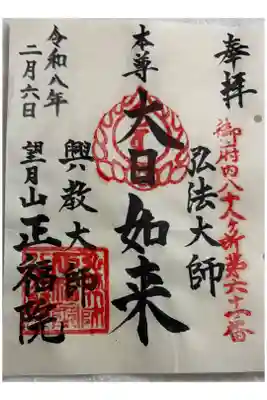 奉拝
御府内八十八ヶ所第六十一番
弘法大師
本尊
大日如来
興教大師
望月山正福院
令和八年
二月六日